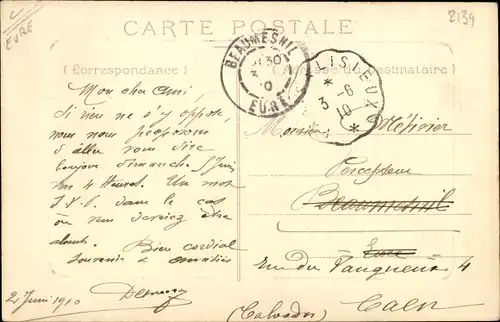 EURE
2139
CARTE POSTALE
(Correspondance)
(Adresse du Destinataire)
BEAUMESNIL
EURE
LISIEUX
3 - 6
10
Mon cher ami,
Si rien ne s'y oppose,
nous nous proposons
d'aller vous dire
bonjour dimanche 5 Juin
vers 4 heures. Un mot
S.V.P. dans le cas
où vous devriez être
absents.
Bien cordial
souvenir &amp; amitiés
2 Juin 1910
Monsieur Métivier
Percepteur
Beaumesnil
Eure
rue du Tanqueux 4
Caen
(Calvados)